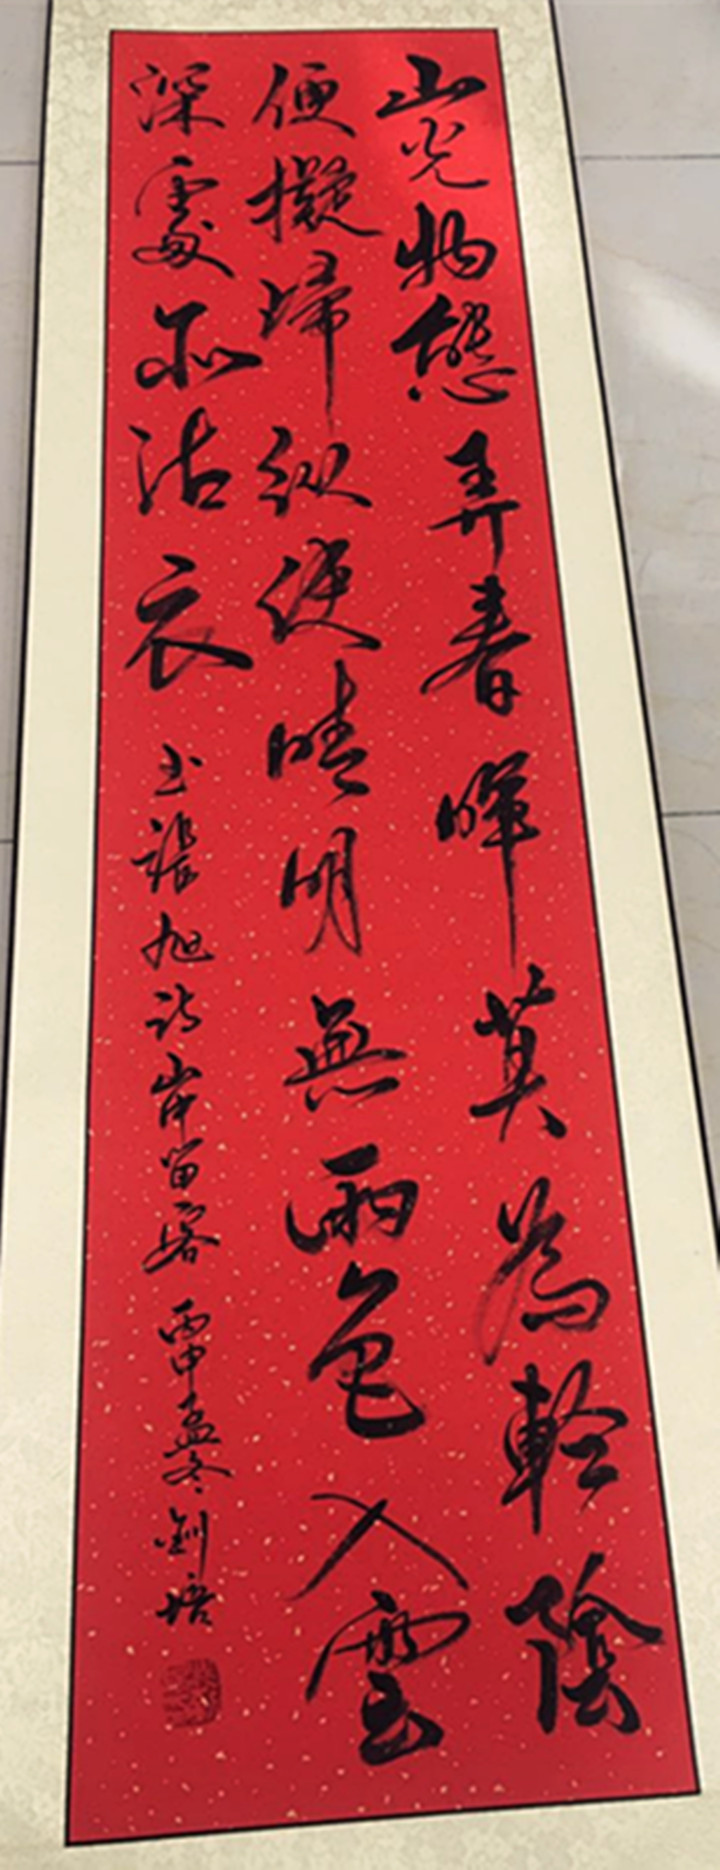 山光物態弄春暉莫為輕陰
便擬歸縱使晴明無雨色入雲
深處亦沾衣
書張旭詩山中留客 丙申孟冬 劉培